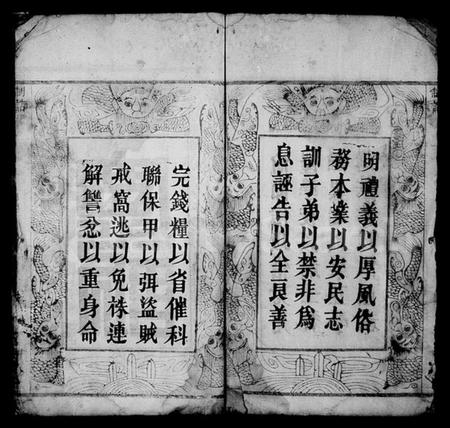 明禮義以厚風俗
務本業以安民志
訓子弟以禁非為
息誣告以全良善
完錢糧以省催科
聯保甲以弭盜賊
戒窩逃以免株連
解讐忿以重身命